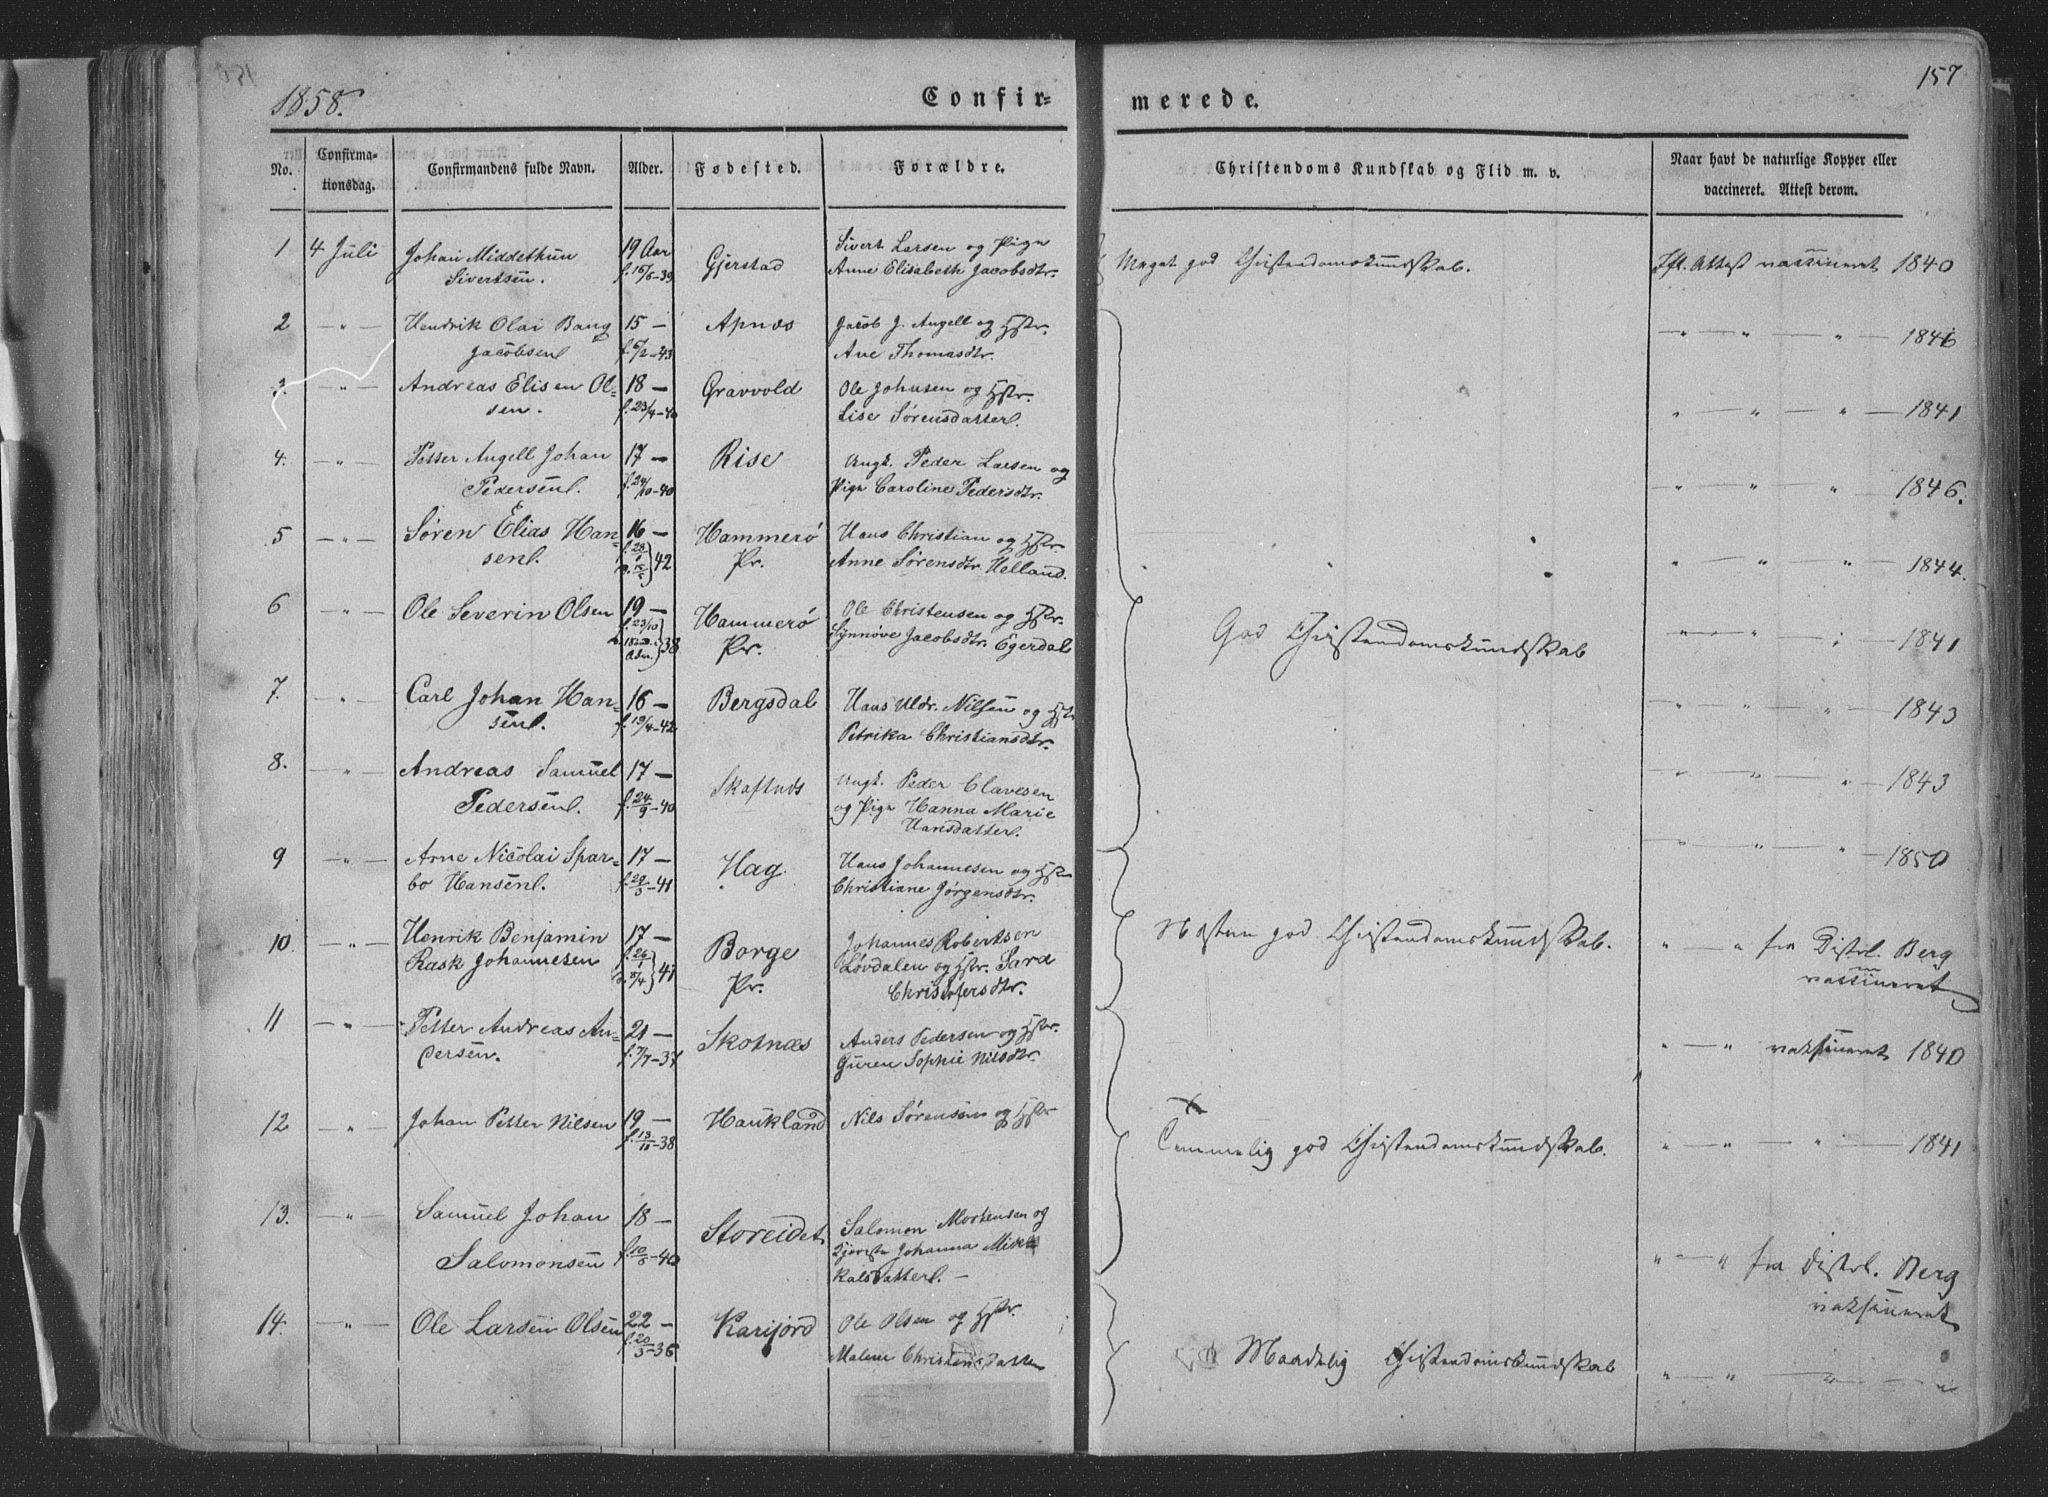 157
1858.
Confir-
merede.
No.
Confirma-
tionsdag.
Confirmandens fulde Navn.
Alder.
Fødested.
Forældre.
Christendoms Kundskab og Flid m. v.
Naar havt de naturlige Kopper eller
vaccineret. Attest derom.
1 4 Juli Johan Middethun 19 Aar Gjerstad Sivert Larsen og Pige
Sivertsen. Anne Elisabeth Jacobsdtr.
Meget god Christendomskundskab. Ifl. Attest vaccineret 1840
2 — " — Hendrik Olai Bang 15 — Apnæs Jacob J. Angell og Hstr.
Jacobsen f. 6/2-43 Ane Thomasdtr.
" — " — " — 1846
3. — " — Andreas Elisen Ol- 18 — Gravvold Ole Johnsen og Hstr.
sen. f. 23/4-40 Lise Sørensdatter.
" — " — " — 1841
4. — " — Petter Angell Johan 17 — Rise Ungk. Peder Larsen og
Pedersen. f. 24/10-40 Pige Caroline Pedersdtr.
" — " — " — 1846.
5 — " — Søren Elias Han- 16 — Hammerø Hans Christian og Hstr.
sen. 42 Pr. Anne Sørensdtr. Helland.
" — " — " — 1844.
6 — " — Ole Severin Olsen 19 — Hammerø Ole Christensen og Hstr.
f. 23/10 38 Pr. Synnøve Jacobsdtr. Egerdal
God Christendomskundskab
" — " — " — 1841
7. — " — Carl Johan Han- 16 — Bergsdal Hans Uldr. Nilsen og Hstr
sen. f. 19/4-42 Petrika Christiansdtr.
" — " — " — 1843
8. — " — Andreas Samuel 17 — Skaftnæs Ungk. Peder Clavesen
Pedersen. f. 24/9-40 og Pige Hanna Marie
Hansdatter.
" — " — " — 1843
9 — " — Arne Nicolai Spar- 17 — Hag Hans Johannesen og Hstr
bo Hansen. f. 29/3-41 Christiane Jørgensdtr.
" — " — " — 1850
10. — " — Henrik Benjamin 17 — Borge Johannes Robertsen
Rask Johannesen 41 Pr. Løvdalen og Hstr. Sara
Christofersdtr.
Næsten god Christendomskundskab. " — " fra Distrl. Berg
vaccineret
11 — " — Petter Andreas An- 21 — Skotnæs Anders Pedersen og Hstr.
dersen. f. 7/7-37 Guren Sophie Nilsdtr.
" — " vaksineret 1840
12 — " — Johan Petter Nilsen 19 — Haukland Nils Sørensen og Hstr
f. 13/10-38
Temmelig god Christendomskundskab. " — " — " — 1841
13. — " — Samuel Johan 18 — Storeidet Salomon Mortensen og
Salomonsen -40 Hjerste Johanna Mik
kalsdatter. —
" — " fra Distrl. Berg
vaksineret
14. — " — Ole Larsen Olsen 22 — Karifjord Ole Olsen og Hstr.
f. 20/3-36 Malene Christensdatter
Maadelig Christendomskundskab
" — " — " — "